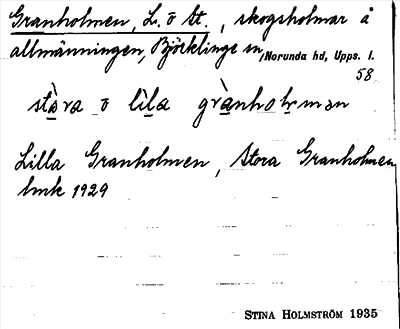 Granholmen, L. o St., skogsholmar å
allmänningen, Björklinge sn, Norunda hd, Upps. l.
58
stòra o lìla grànholmən
Lilla Granholmen, Stora Granholmen
lmk 1929
STINA HOLMSTRÖM 1935